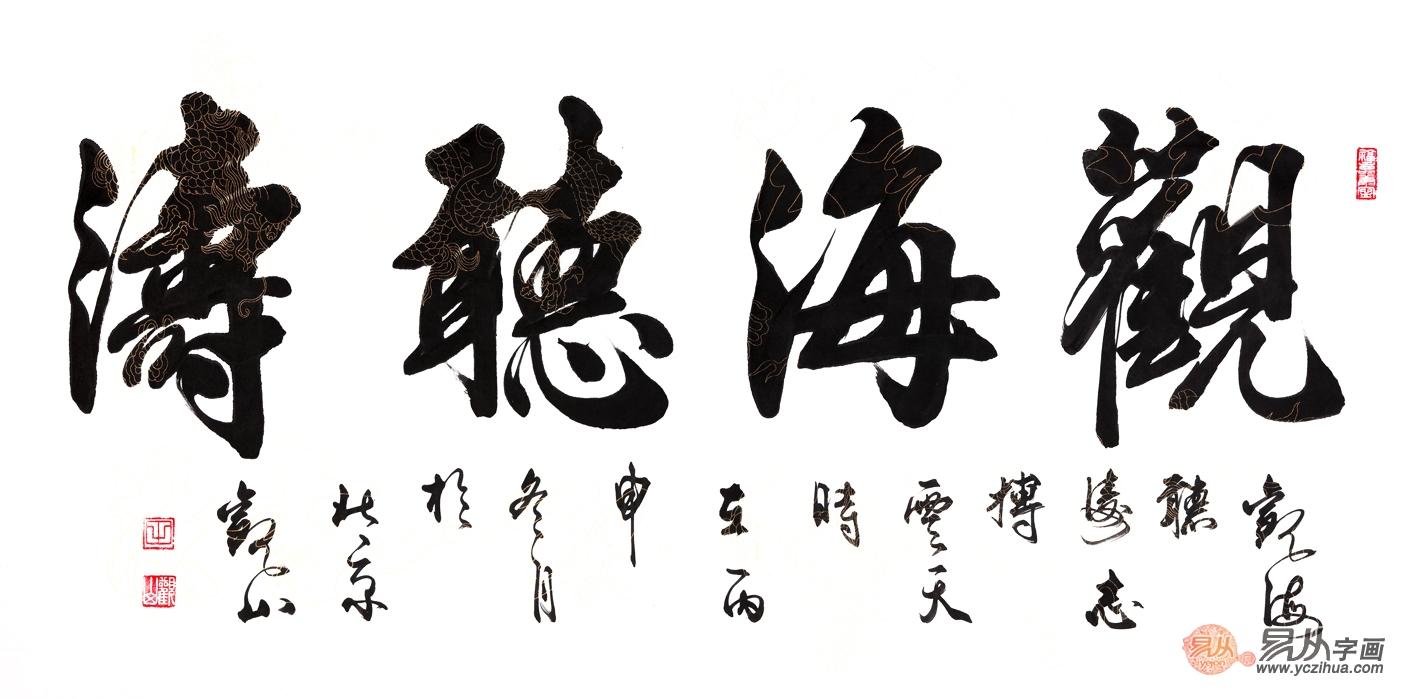 觀海聽濤
觀海
聽
濤志
搏
雲天
時
在丙
申
冬月
於
北京
觀山
觀山
易从
易从字画
www.yczihua.com